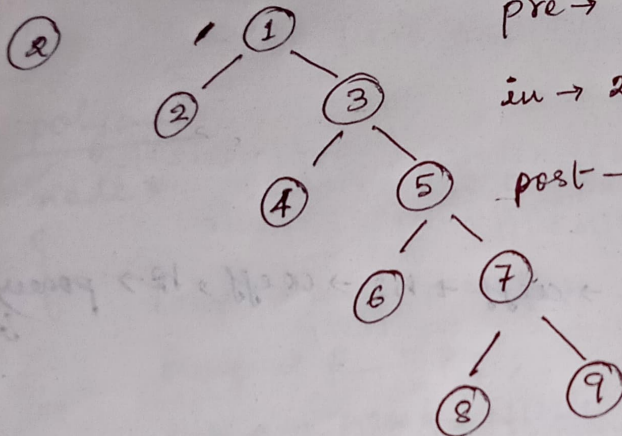 2 1 pre →
2 3 in → 2
4 5 post -
6 7
8 9